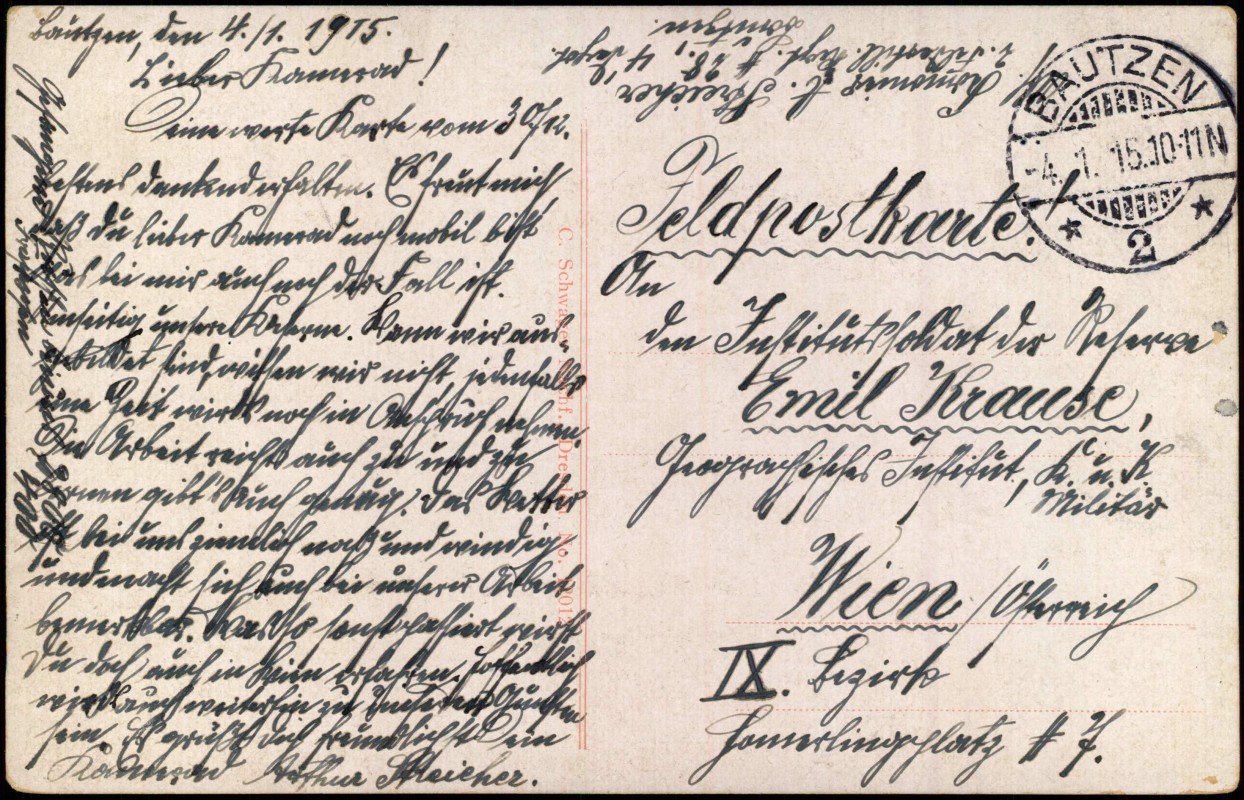 Bautzen, den 4./1. 1915.
Lieber Kamerad!
Deine werte Karte vom 30/12.
bestens dankend erhalten. Es freut mich,
daß Du lieber Kamerad noch mobil bist
was bei mir auch noch der Fall ist.
umseitig unsere Kaserne. Wann wir aus-
gebildet sind, wissen wir nicht, jedenfalls
eine Zeit wird's noch in Anspruch nehmen.
Die Arbeit reicht auch zu und zu
lernen gibt's auch genug. Das Wetter
ist bei uns ziemlich naß und windig
und macht sich auch bei unserer Arbeit
bemerkbar. Was so sonst passiert wirst
Du doch auch in Wien erfahren. Hoffentlich
wird's auch weiterhin zu unseren Gunsten
sein. Es grüßt Dich freundlichst ein
Kamerad Arthur Streicher.
Kanonier A. Streicher
Feldartill. Regt. # 28,
Bautzen.
BAUTZEN
-4. 1. 15.10-11N
* 2 *
Feldpostkarte!
An
den Institutssoldat der Reserve
Emil Krause,
Geographisches Institut, K. u. K.
Militär
Wien / Österreich
IX. Bezirk
Hamerlingplatz # 7.
C. Schwager Dresden No.